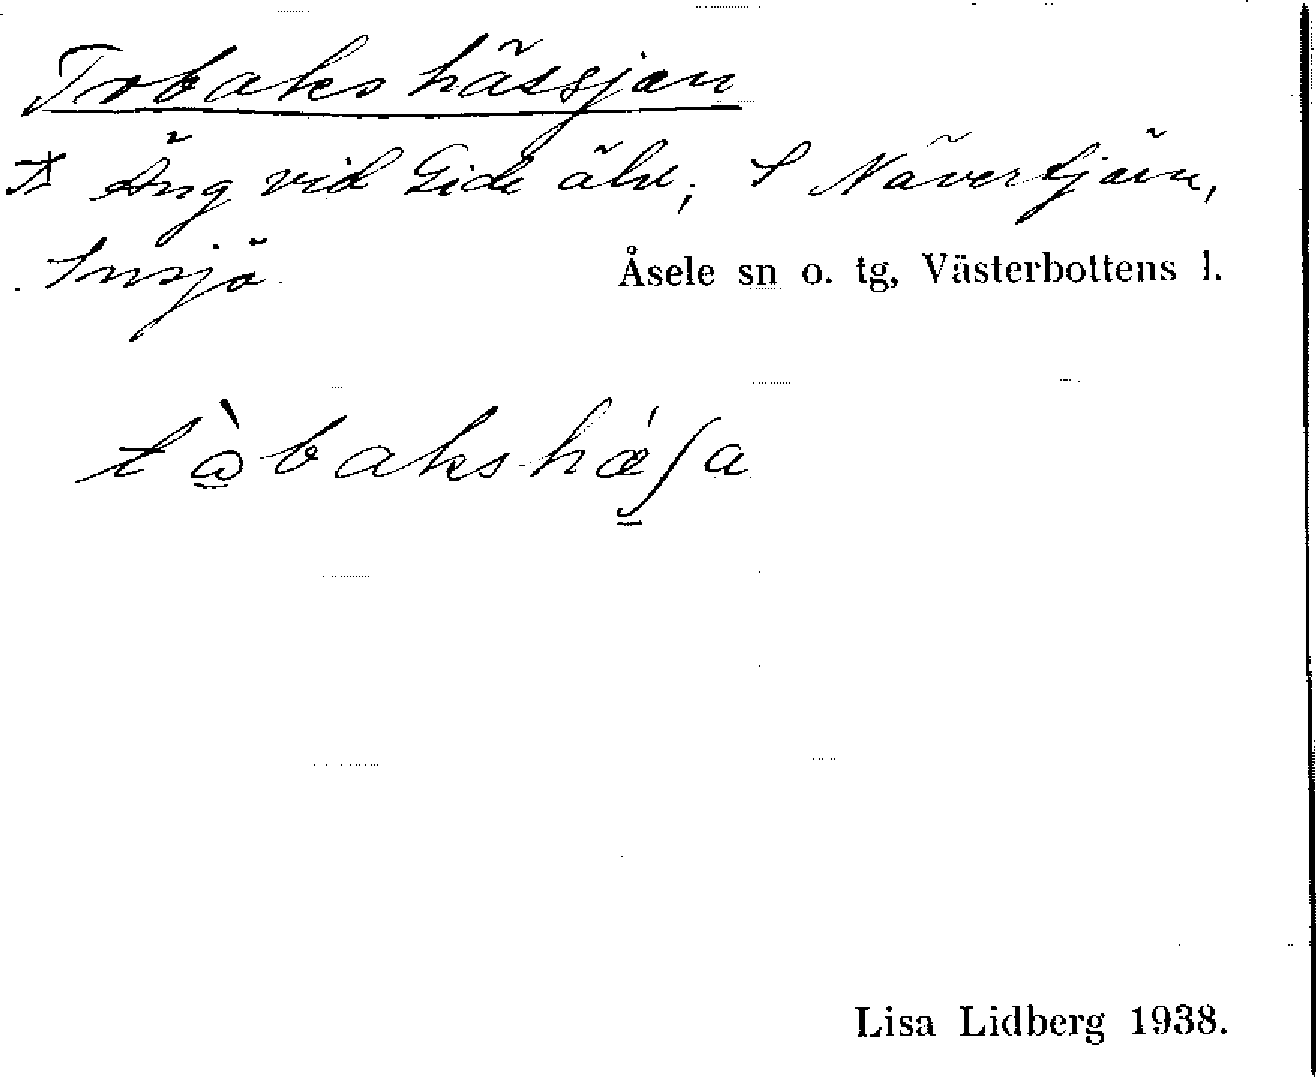 Tobakshässjan
* Äng vid Gide älv, S Nävertjärn,
Insjö Åsele sn o. tg, Västerbottens l.
tòbakshæ´ʃa
Lisa Lidberg 1938.